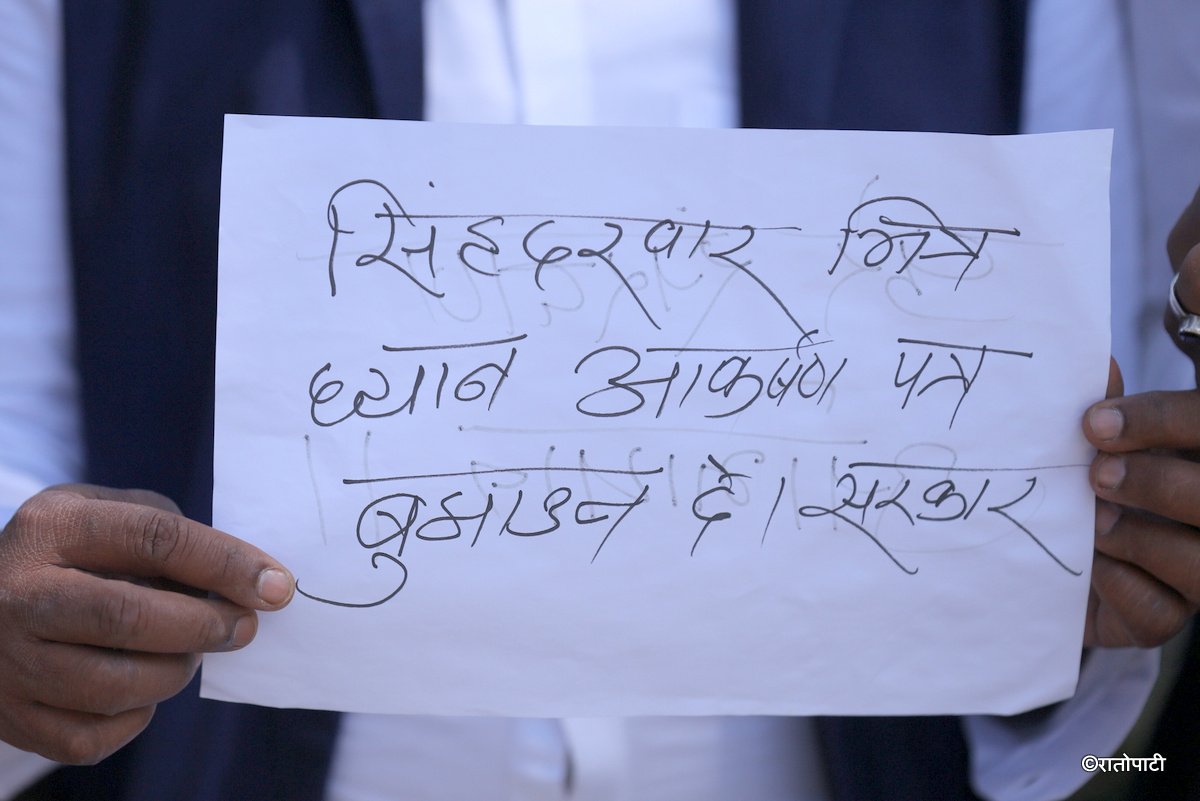 सिंहदरवार भित्र
ध्यान आकर्षण पत्र
बुझाउन दे। सरकार
©रातोपाटी